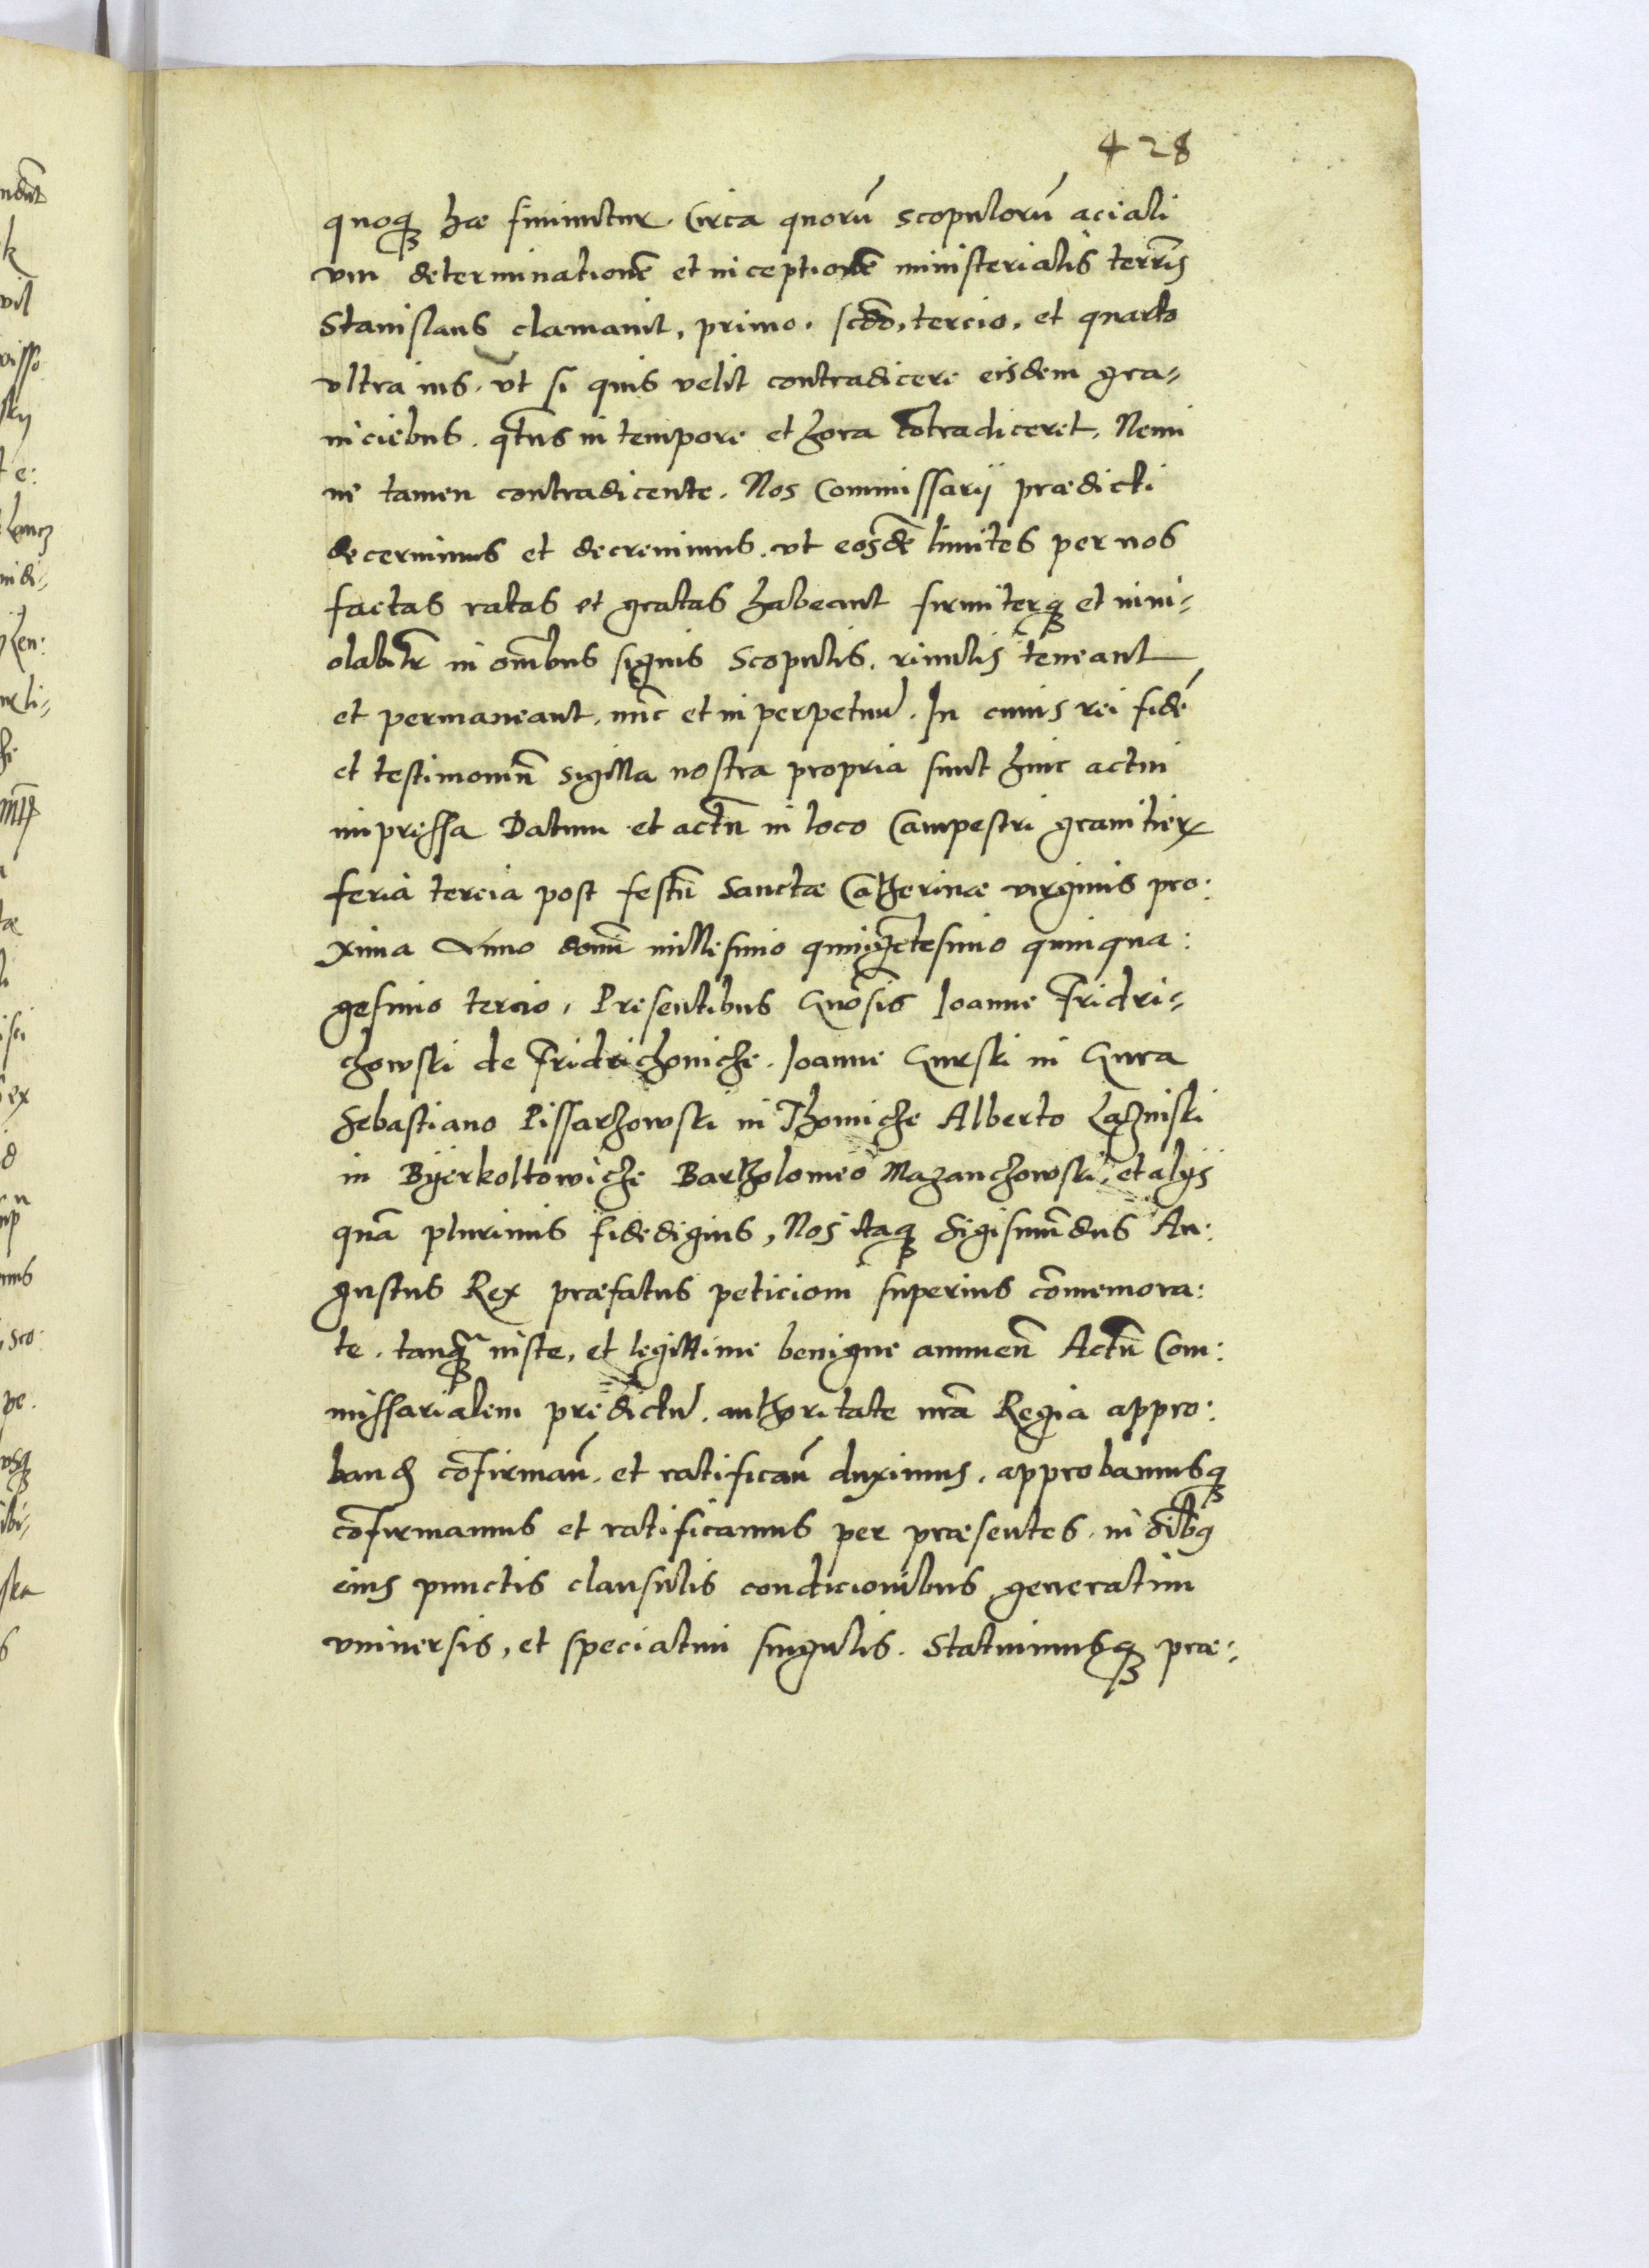 428
quoq̃ hæ finiuntur. Circa quorũ scopulorũ aciali
um determinationẽ et inceptionẽ ministerialis terr̃is
Stanislaus clamauit, primo. scđo, tercio, et quarto
vltra ius. vt si quis velit contradicere eisdem gra⸗
niciebus. q̃tus in tempore et hora cõtradiceret. Nemi
ne tamen contradicente. Nos Commissarij prædicti
decernimus et decreuimus. vt eosdẽ limites per nos
factas ratas et gratas habeant firmiterq̃ et inui⸗
olabilr̃ in om̃bus signis Scopulis. riuulis teneant
et permaneant. nũc et in perpetuũ. In cuius rei fidẽ
et testimoniũ sigilla nostra propria sunt huic actui
impressa Datum et actũ in loco Campestri granitier
feria tercia post festũ Sanctæ Catherinæ virginis pro:
xima Anno domĩ millesimo quingẽtesimo quinqua:
gesimo tercio, Presentibus Gñosis Ioanne Fridri⸗
chowski de Fridrichowiche. Ioanne Gurski in Gura
Sebastiano Pissarzowski in Thomiche Alberto Lazniski
in Byerkoltowiche Bartholomeo Mazanchowski, et alijs
quã plurimis fidedignis, Nos itaq̃ Sigismũdus Au:
gustus Rex præfatus peticioni superius cõmemora:
te. tanq̃ iuste, et legittime benigne annueñ Actũ Com:
missarialem predictũ. authoritate nr̃a Regia appro:
band̃ cõfirmañ. et ratificañ duximus. approbamusq̃
cõfirmamus et ratificamus per præsentes. in oĩbq
eius punctis clausulis condicionibus generatim
vniuersis, et speciatim singulis. Statuimusq̃ præ⸗